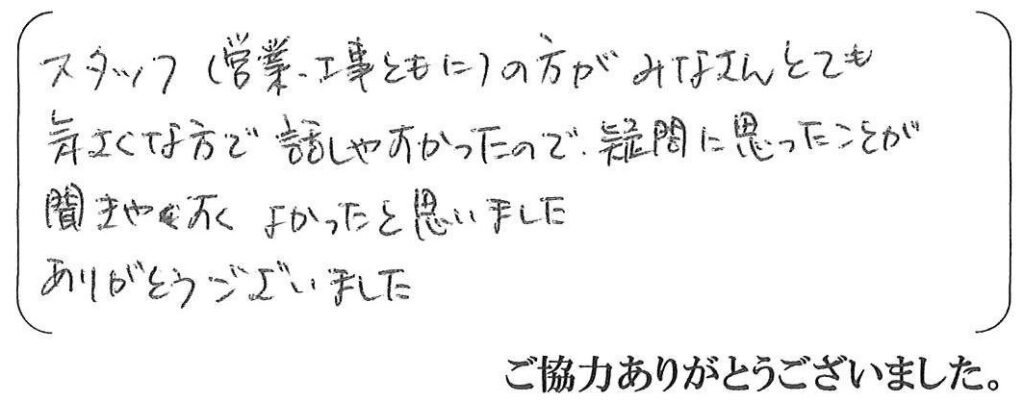 スタッフ(営業、工事ともに)の方がみなさんとても
気さくな方で話しやすかったので、疑問に思ったことが
聞きやすく よかったと思いました
ありがとうございました
ご協力ありがとうございました。